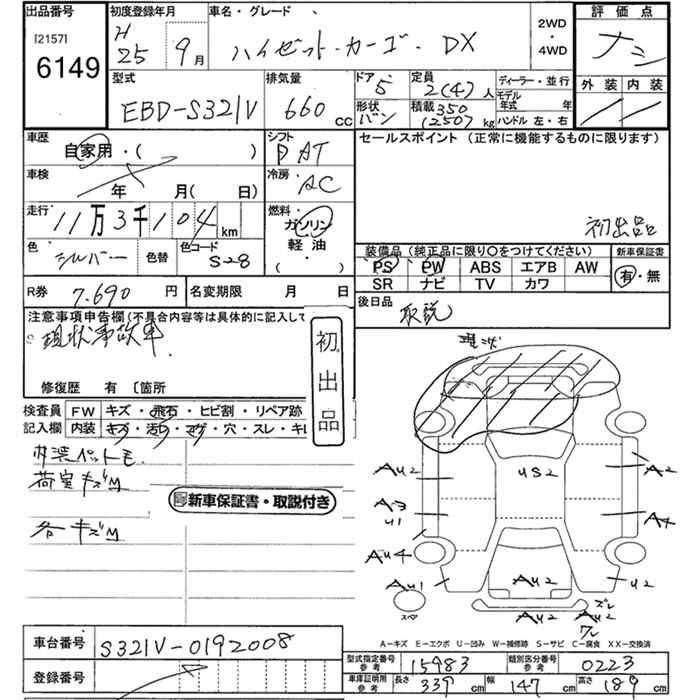 出品番号
[2157]
6149
初度登録年月
H
25 9月
車名・グレード
ハイゼット・カーゴ・DX
2WD
・
4WD
評価点
ナシ
外装 内装
型式
EBD-S321V
排気量
660 CC
ドア 5
形状 バン
定員 2(4)人
積載 350
(250) kg
ディーラー・並行
モデル年式 年
ハンドル 左・右
車歴
自家用・( )
シフト
F AT
セールスポイント (正常に機能するものに限ります)
車検
年 月( 日)
冷房
AC
走行
11万3千104 km
燃料
ガソリン
軽油
( )
初出品
色
シルバー
色替
色コード
S28
装備品 (純正品に限り○をつけてください)
PS PW ABS エアB AW
SR ナビ TV カワ
新車保証書
有・無
R券 7.690 円
名変期限 月 日
後日品
取説
注意事項申告欄(不具合内容等は具体的に記入して
現状事故車
修復歴 有 〔箇所
初出品
検査員
記入欄
FW キズ・飛石・ヒビ割・リペア跡
内装 キズ・汚れ・コゲ・穴・スレ・キレ
内装ペットモ
荷室キズM
各キズM
新車保証書・取説付き
現状
AU2
US2
A2
A3
U1
AU4
AU1
AU2
U2
AU2
AU2
スペア
A－キズ E－エクボ U－凹み W－補修跡 S－サビ C－腐食 XX－交換済
車台番号 S321V-0192008
登録番号
型式指定番号
参考
15983
類別区分番号
参考
0223
車庫証明用
参考
長さ 339 cm 幅 147 cm 高さ 189 cm